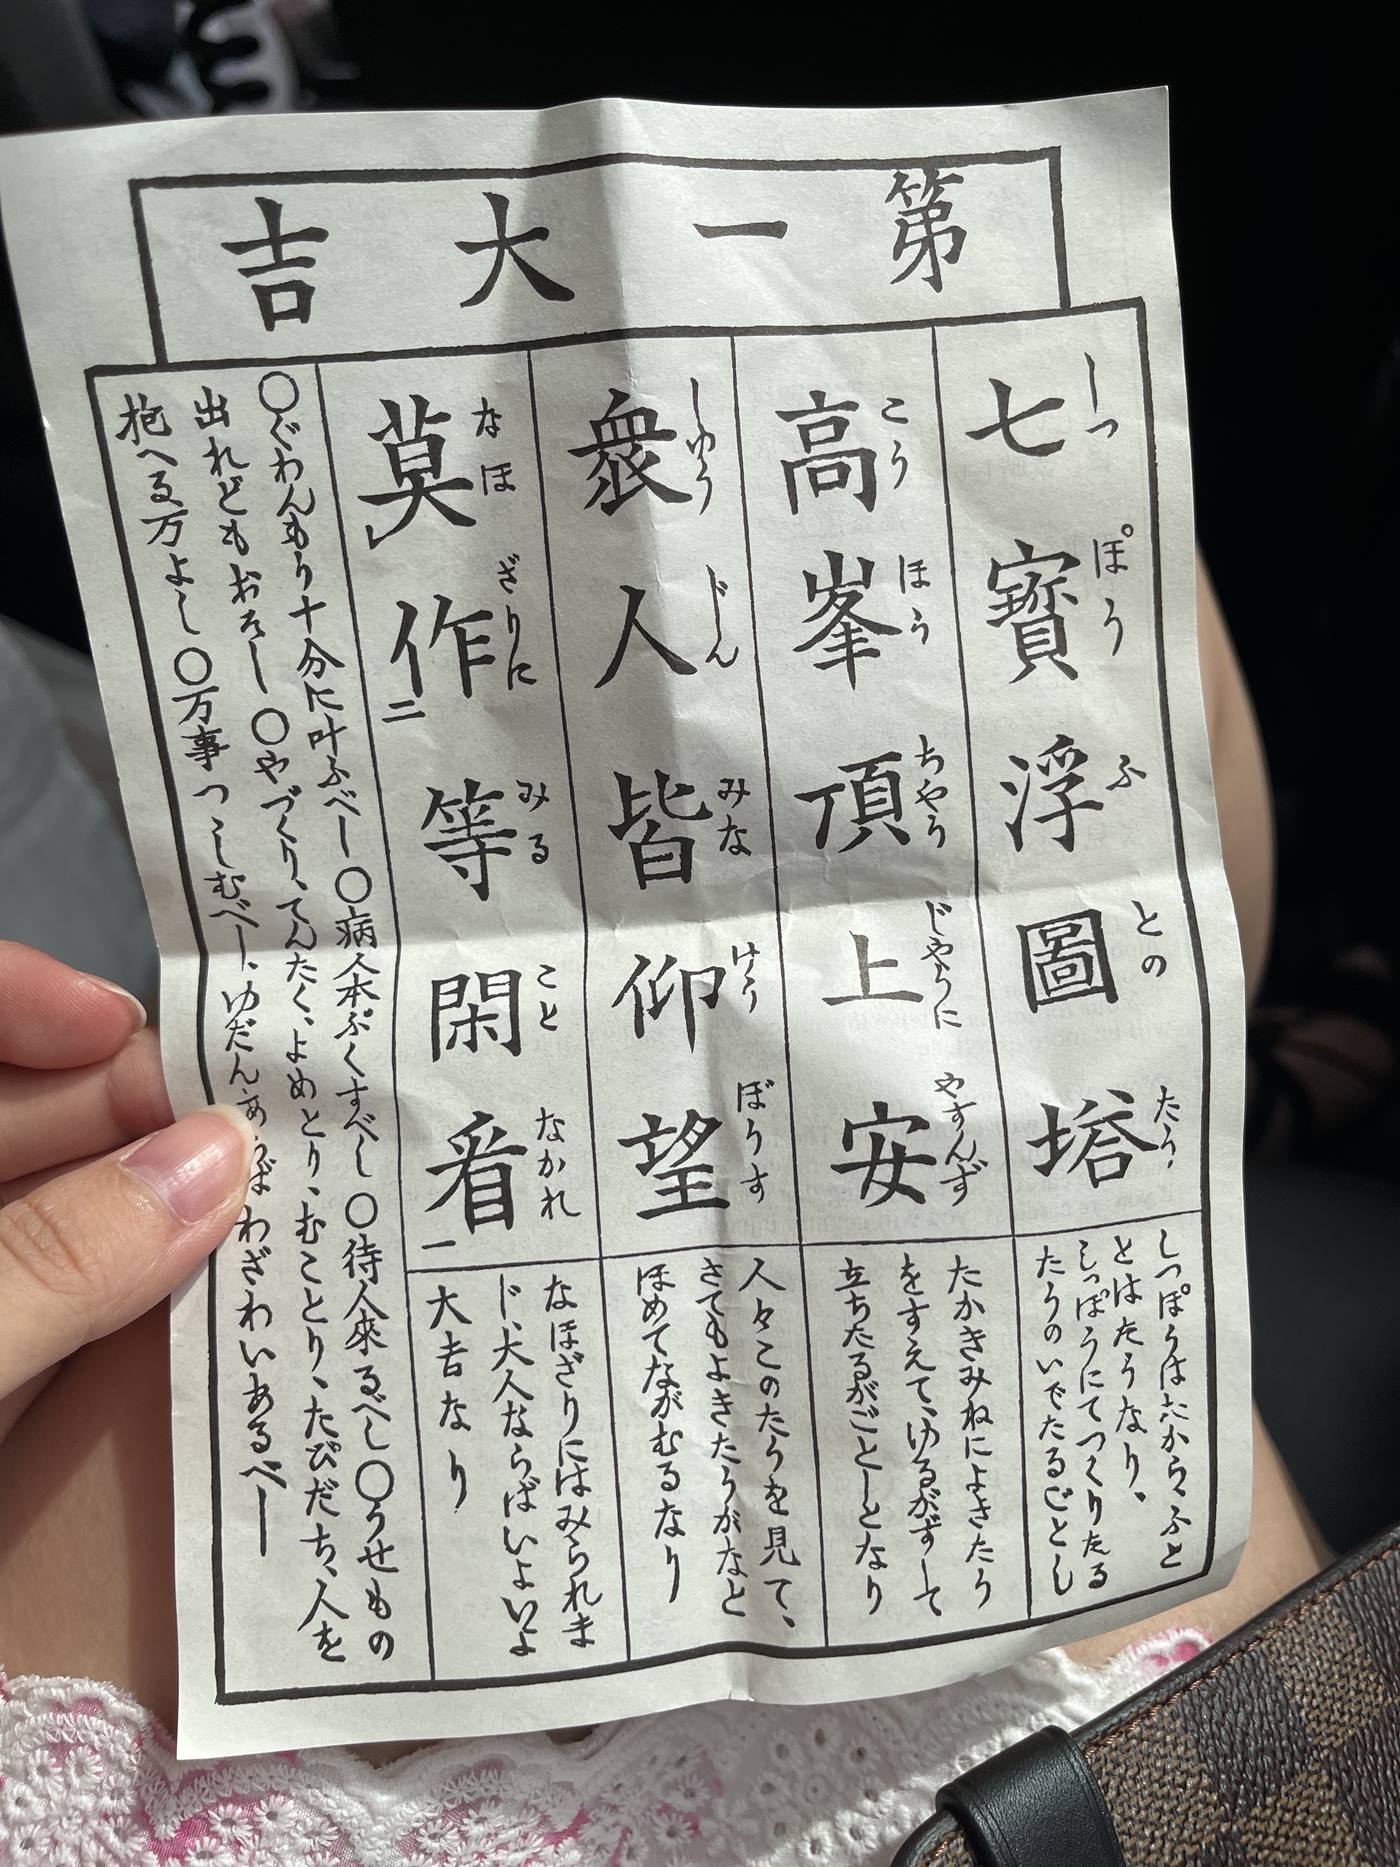 第一大吉
七寶浮圖塔
しつぽうふとのたう
しつぽうはたから、ふと
とはたうなり、
しつぽうにてつくりたる
たうのいでたるごとし
高峯頂上安
こうほうちやうじやうにやすんず
たかきみねによきたう
をすえて、ゆるがずして
立ちたるがごとしとなり
衆人皆仰望
しゆうじんみなけうぼうす
人々このたうを見て、
さてもよきたうがなと
ほめてながむるなり
莫作二等閑看一
なほざりにみることなかれ
なほざりにはみられま
じ、大人ならばいよいよ
大吉なり
〇ぐわんもう十分に叶ふべし〇病人本ぷくすべし〇待人來るべし〇うせもの
出れどもおそし〇やづくり、てんたく、よめとり、むことり、たびだち、人を
抱へる万よし〇万事つゝしむべし、ゆだんあらばわざわいあるべし